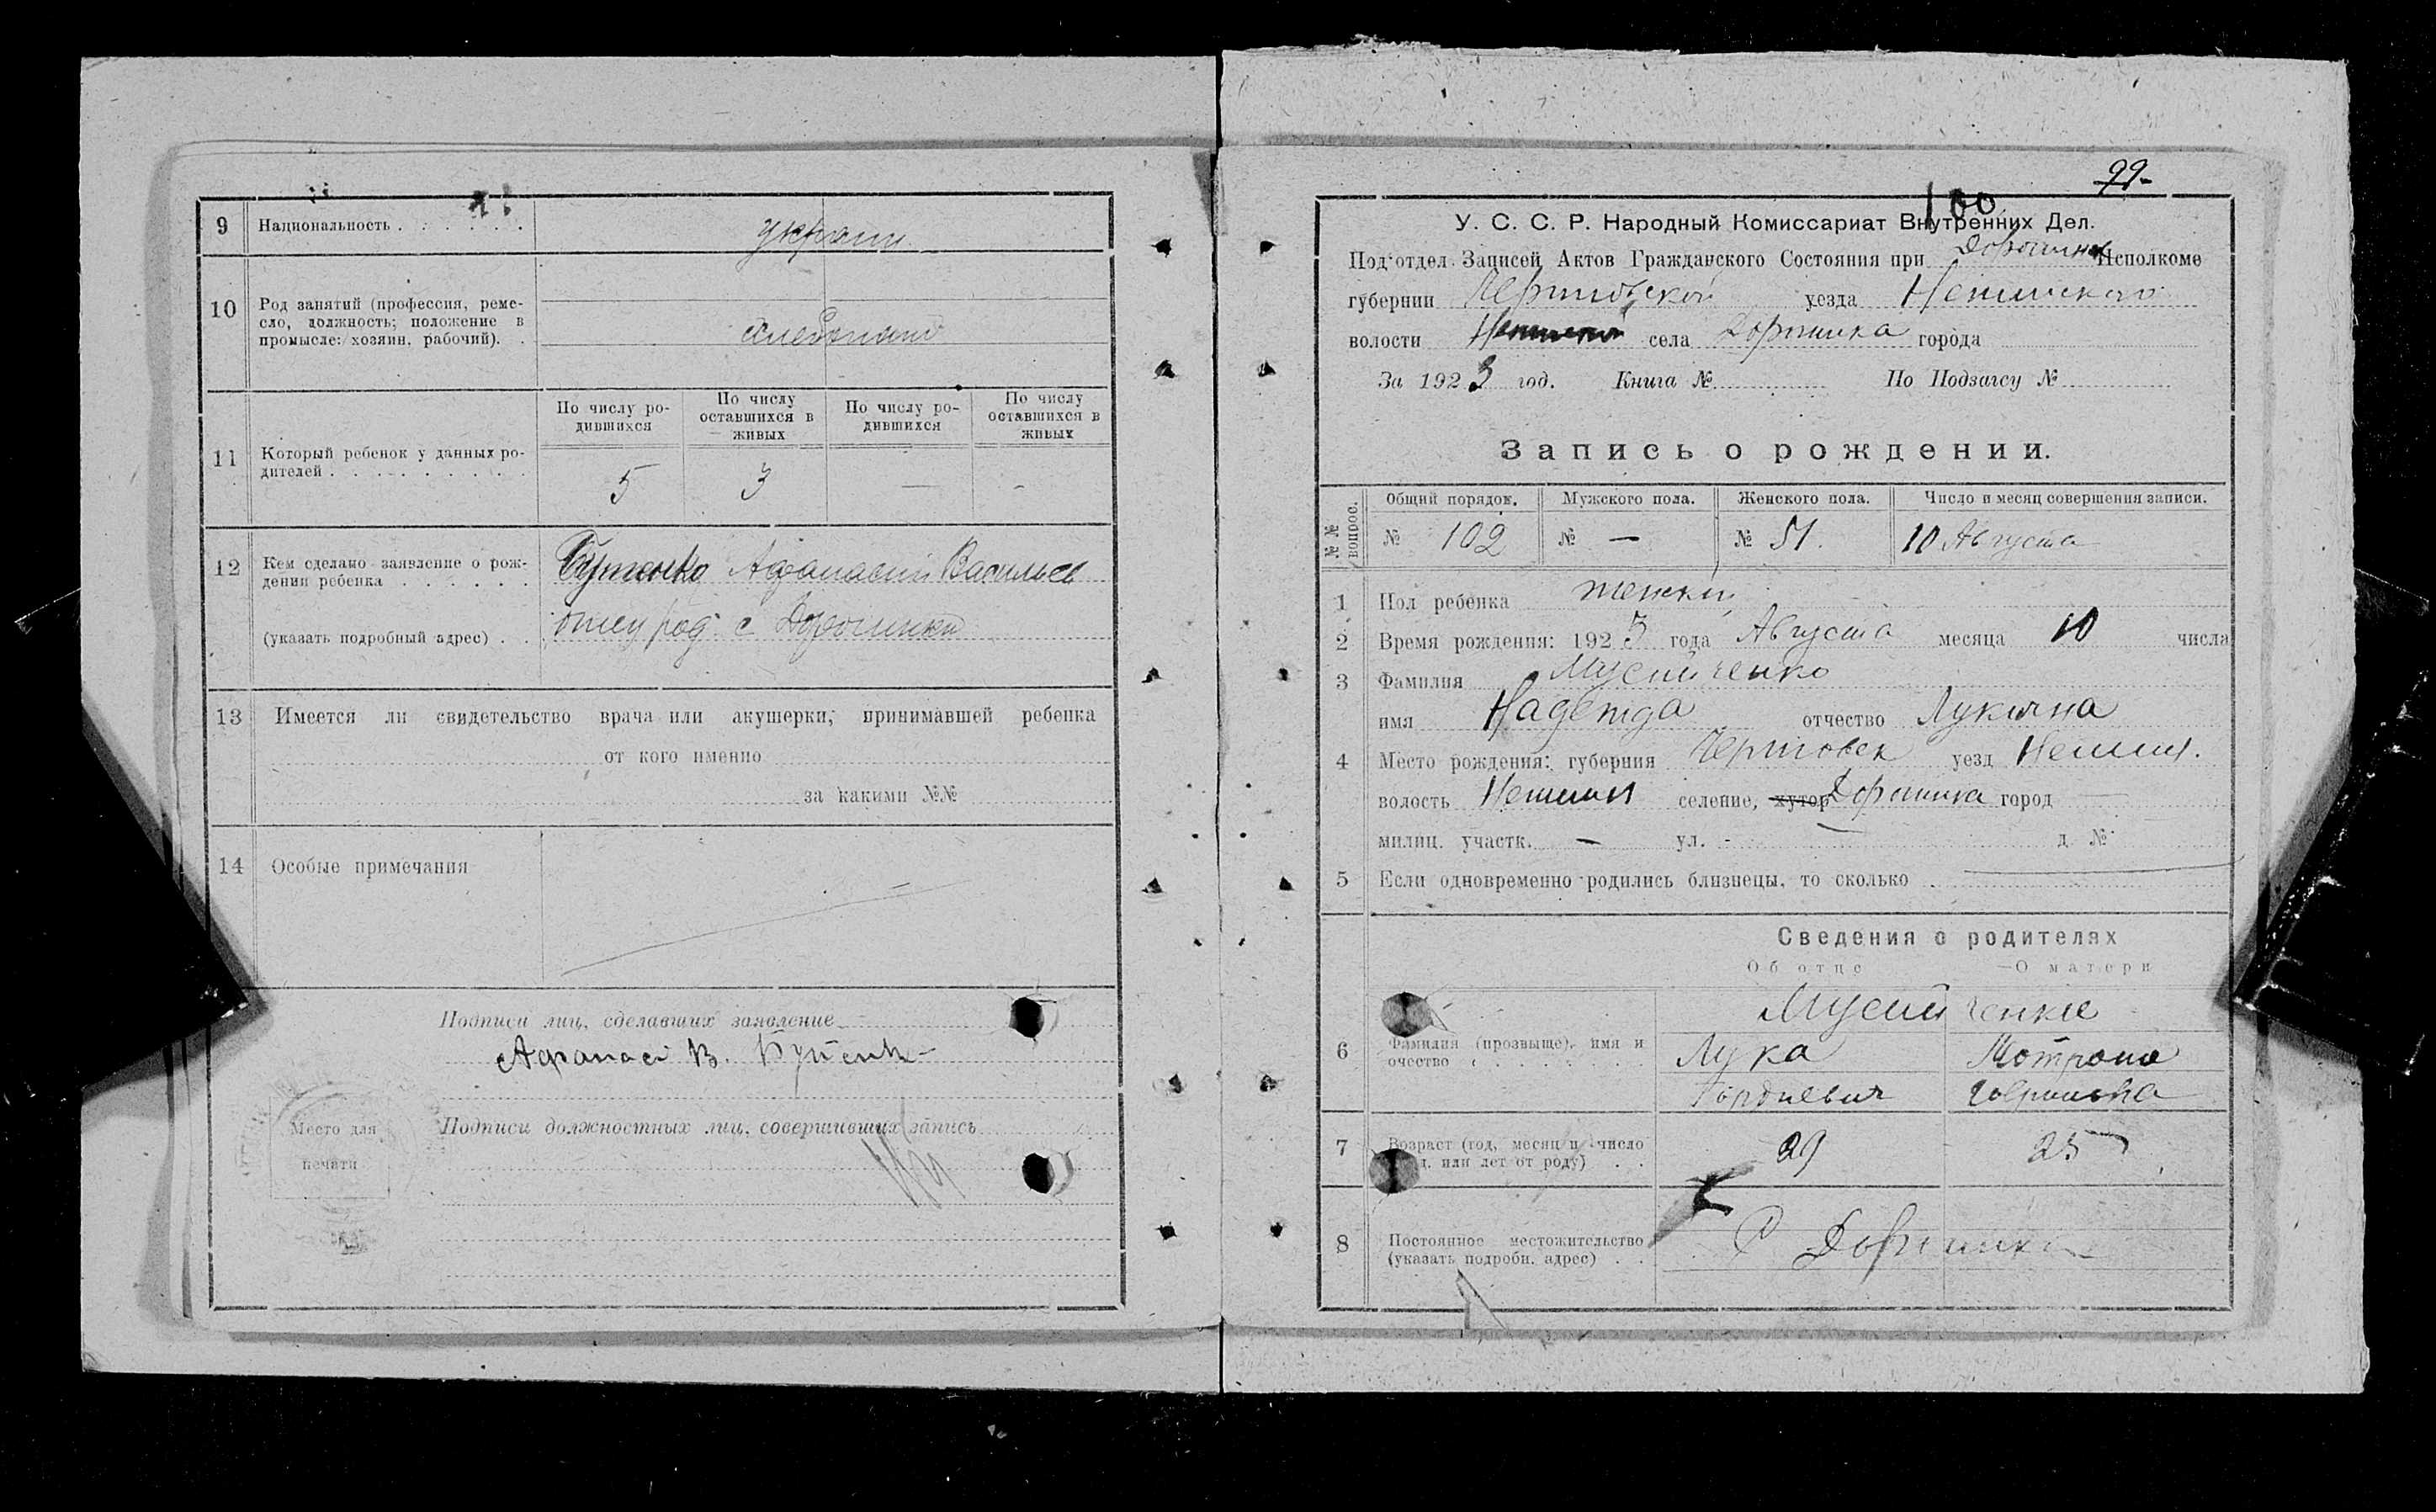 9 Национальность . . . . . . .
украин
10 Род занятий (профессия, реме-
сло, должность; положение в
промысле: хозяин, рабочий). .
хлебопаш
11 Который ребенок у данных ро-
дителей . . . . . . . . . .
По числу ро-
дившихся
По числу
оставшихся в
живых
По числу ро-
дившихся
По числу
оставшихся в
живых
5 3 — -
12 Кем сделано заявление о рож-
дении ребенка . . . . . .
(указать подробный адрес) . .
Бутенко Афанасий Васильев
с Дорошинка
13 Имеется ли свидетельство врача или акушерки, принимавшей ребенка
от кого именно
за какими №№
14 Особые примечания
Подписи лиц, сделавших заявление
Афанасі В. Бутенк
Место для
печати
Подписи должностных лиц, совершивших запись
99.
100
У. С. С. Р. Народный Комиссариат Внутренних Дел.
Под'отдел Записей Актов Гражданского Состояния при Дорогинск Исполкоме
губернии Черниговской уезда Нежинского
волости села Доргинка города
За 1923 год. Книга № По Подзагсу №
Запись о рождении.
№№ вопрос.
Общий порядок. Мужского пола. Женского пола. Число и месяц совершения записи.
№ 102 № — № 51. 10 Августа
1 Пол ребенка женский
2 Время рождения: 1923 года Августа месяца 10 числа
3 Фамилия Мусийченко
имя Надежда отчество Лукична
4 Место рождения: губерния уезд Нежин.
волость Нежин селение, хутор Доргинка город —
милиц. участк. — ул. - — д. №
5 Если одновременно родились близнецы, то сколько
Сведения о родителях
Об отце О матери
6 Фамилия (прозвище), имя и
очество . . . . . . . .
Мусийченки
Лука Мотрона
Гордиевич
7 Возраст (год, месяц и число
или лет от роду) . .
29 25
8 Постоянное местожительство
(указать подробн. адрес) . .
С Доргинка